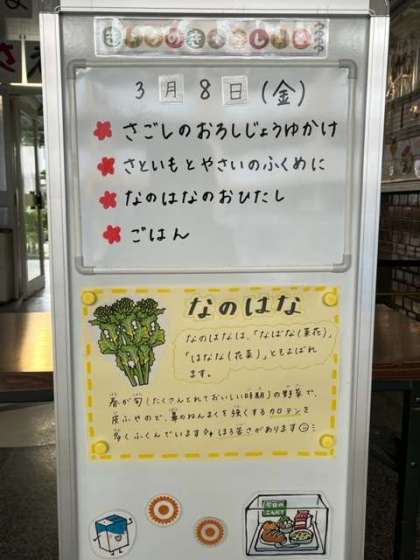 3月8日(金)
さごしのおろしじょうゆかけ
さといもとやさいのふくめに
なのはなのおひたし
ごはん
なのはな
なのはなは、「なばな(菜花)」
「はなな(花菜)」ともよばれ
ます。
春が旬(たくさんとれておいしい時期)の野菜で、
皮ふやのど、鼻のねんまくを強くするカロテンを
多くふくんでいます。ほろ苦さがあります
今日の
こんだて